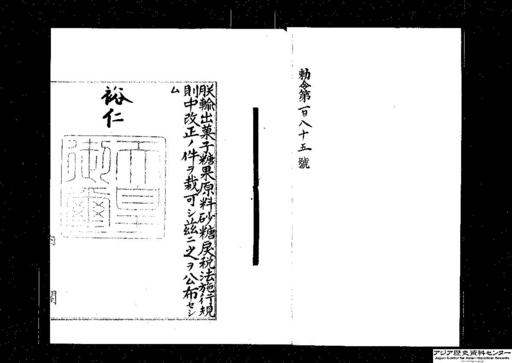 勅令第一百八十五號
朕輸出菓子糖果原料砂糖戻税法施行規
則中改正ノ件ヲ裁可シ茲ニ之ヲ公布セシ
ム
裕仁
天皇
御璽
内閣
アジア歴史資料センター
Japan Center for Asian Historical Records